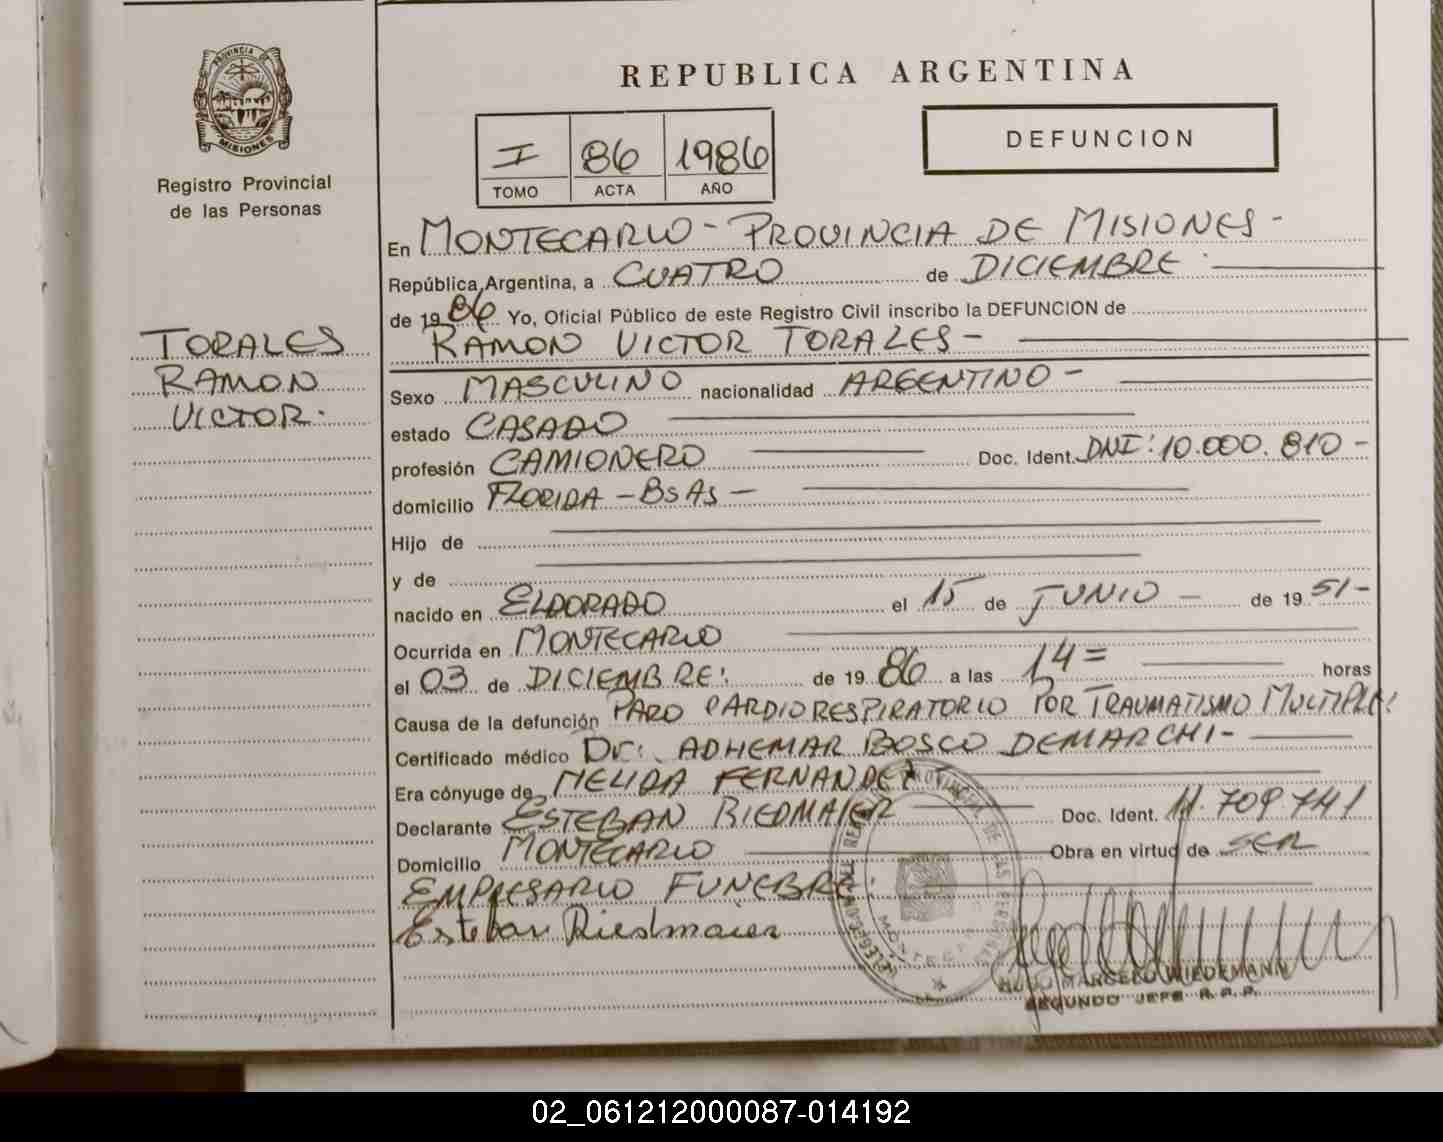 PROVINCIA DE
MISIONES
Registro Provincial
de las Personas
REPUBLICA ARGENTINA
I 86 1986
TOMO ACTA AÑO
DEFUNCION
En MONTECARLO - PROVINCIA DE MISIONES -
República Argentina, a CUATRO de DICIEMBRE
de 1986 Yo, Oficial Público de este Registro Civil inscribo la DEFUNCION de
RAMON VICTOR TORALES -
TORALES
RAMON
VICTOR.
Sexo MASCULINO nacionalidad ARGENTINO -
estado CASADO
profesión CAMIONERO Doc. Ident. DNI: 10.000.810 -
domicilio FLORIDA - BS AS -
Hijo de
y de
nacido en ELDORADO el 15 de JUNIO - de 19 51 -
Ocurrida en MONTECARLO
el 03 de DICIEMBRE: de 19 86 a las 14 = horas
Causa de la defunción PARO CARDIORESPIRATORIO POR TRAUMATISMO MULTIPLE:
Certificado médico Dr: ADHEMAR BOSCO DEMARCHI -
Era cónyuge de NELIDA FERNANDEZ
Declarante ESTEBAN RIEDMAIER Doc. Ident. 11.709.741
Domicilio MONTECARLO Obra en virtud de SER
EMPRESARIO FUNEBRE.
Esteban Riedmaier
HUGO MARCELO WIEDEMANN
SEGUNDO JEFE R.P.P.
02_061212000087-014192